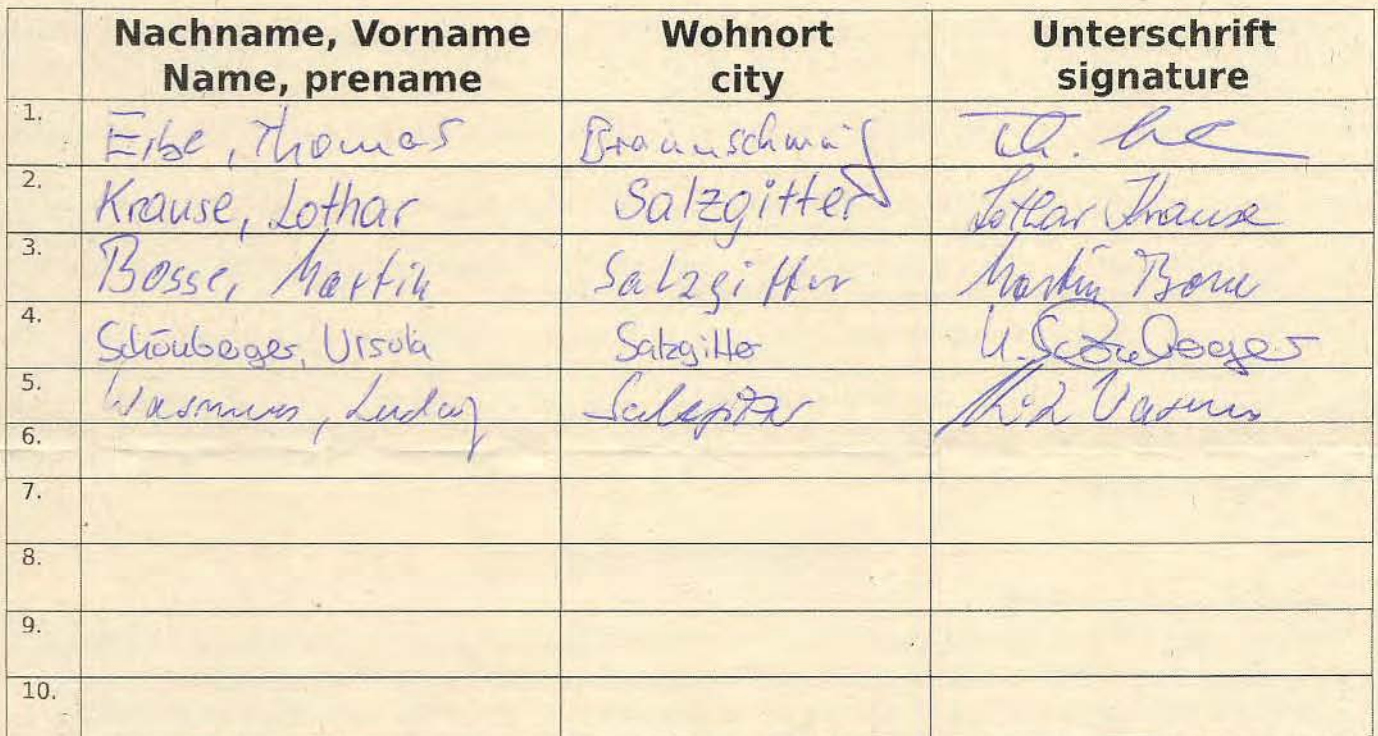 Nachname, Vorname Wohnort Unterschrift
Name, prename city signature
1. Erbe, Thomas Braunschweig Th.
2. Krause, Lothar Salzgitter Lothar Krause
3. Bosse, Martin Salzgitter Martin Bosse
4. Schönberger, Ursula Salzgitter U. Schönberger
5. Wasmus, Ludwig Salzgitter
6.
7.
8.
9.
10.